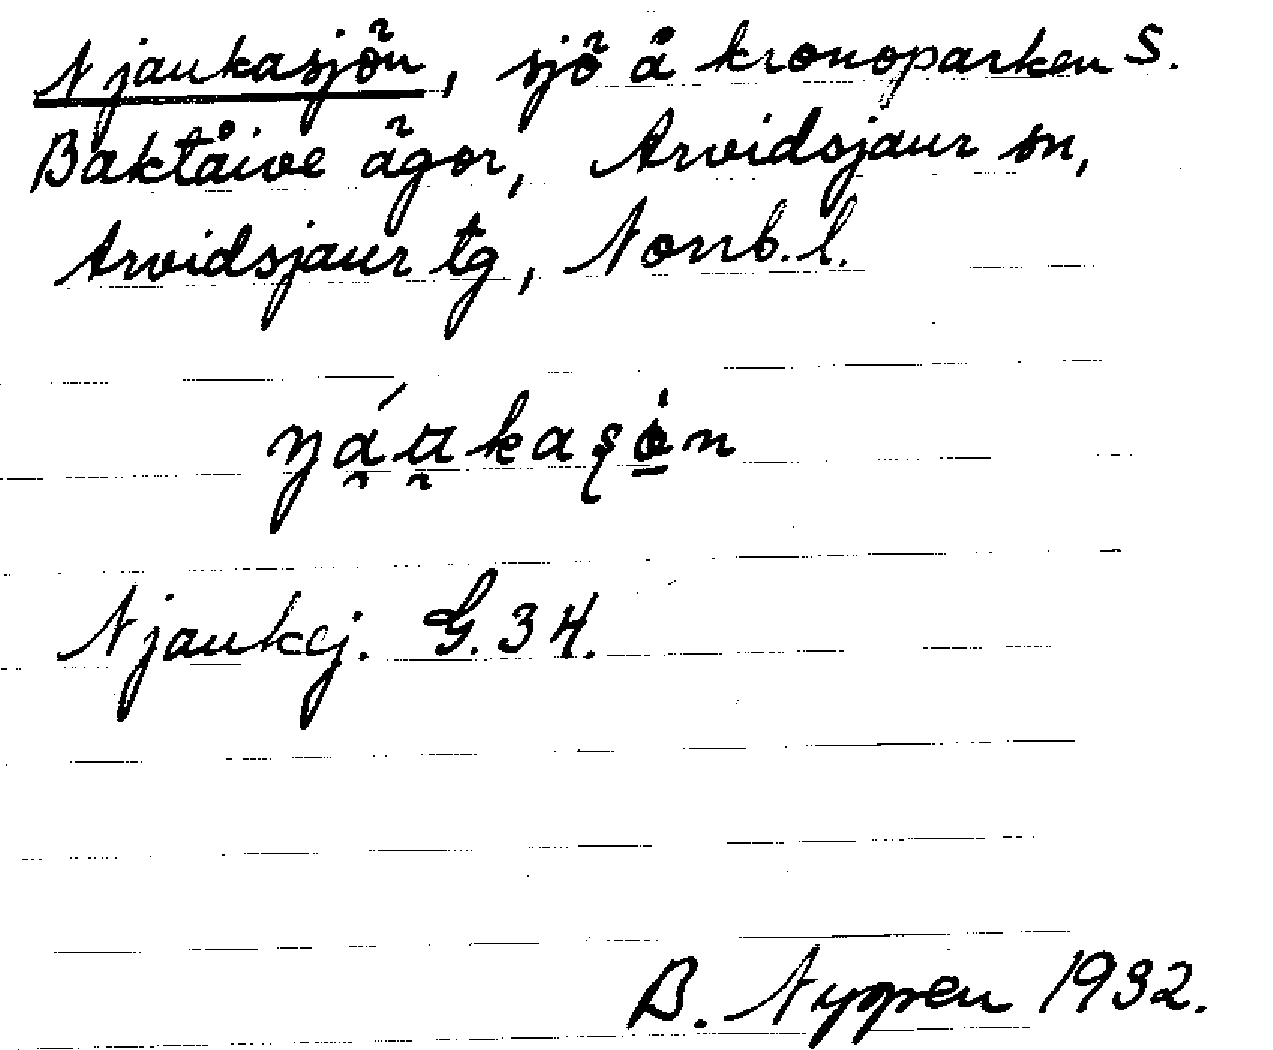 Njaukasjön, sjö å kronoparken S.
Baktåive ägor, Arvidsjaur sn,
Arvidsjaur tg, Norrb. l.
Njaukej. G. 34.
B. Nygren 1932.